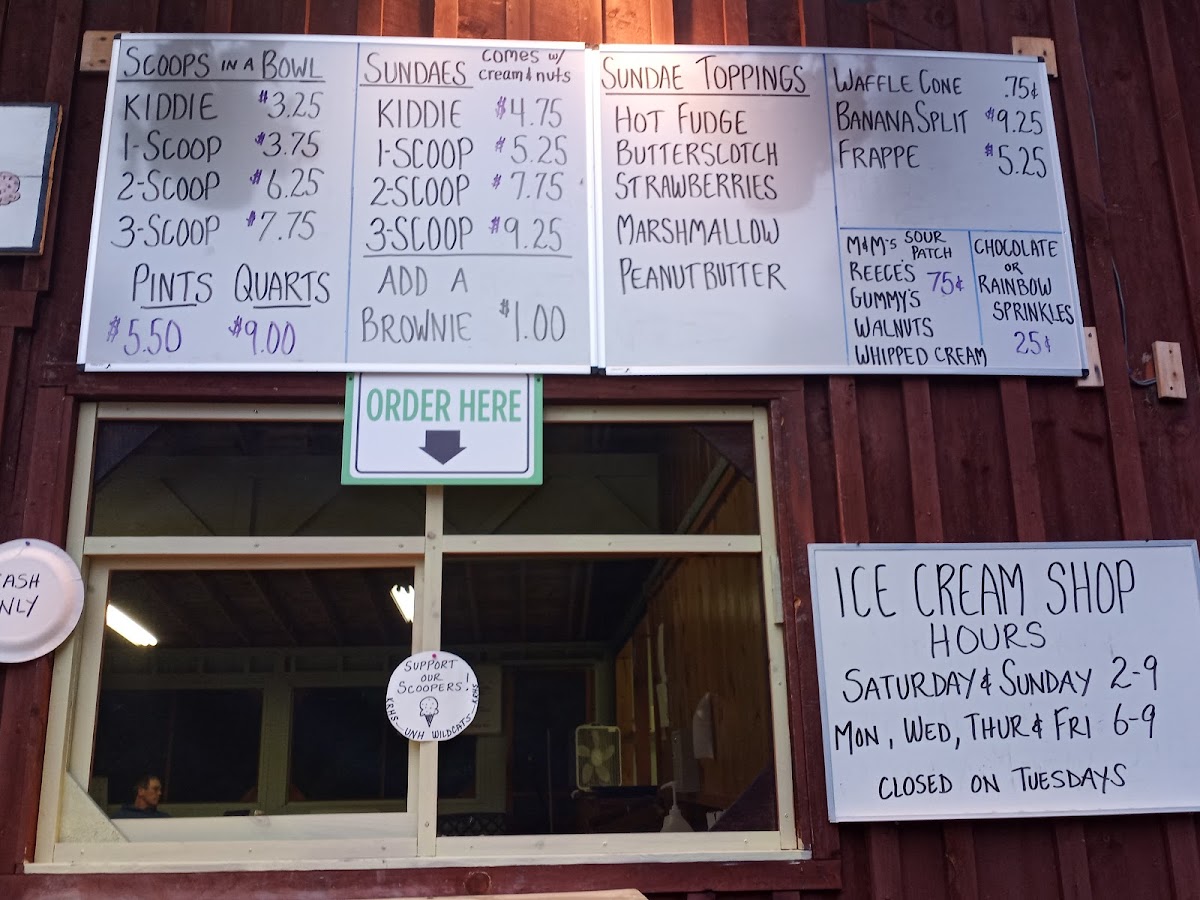 SCOOPS IN A BOWL
KIDDIE $3.25
1-SCOOP $3.75
2-SCOOP $6.25
3-SCOOP $7.75
PINTS QUARTS
$5.50 $9.00
SUNDAES COMES W/
cream & nuts
KIDDIE $4.75
1-SCOOP $5.25
2-SCOOP $7.75
3-SCOOP $9.25
ADD A
BROWNIE $1.00
SUNDAE TOPPINGS
HOT FUDGE
BUTTERSCOTCH
STRAWBERRIES
MARSHMALLOW
PEANUT BUTTER
WAFFLE CONE .75¢
BANANA SPLIT $9.25
FRAPPE $5.25
M&M'S SOUR
PATCH
REECE'S 75¢
GUMMY'S
WALNUTS
WHIPPED CREAM
CHOCOLATE
OR
RAINBOW
SPRINKLES
25¢
ORDER HERE
CASH
ONLY
SUPPORT
OUR
SCOOPERS!
KRHS-UNH WILDCATS-KRHS
ICE CREAM SHOP
HOURS
SATURDAY & SUNDAY 2-9
MON, WED, THUR & FRI 6-9
CLOSED ON TUESDAYS